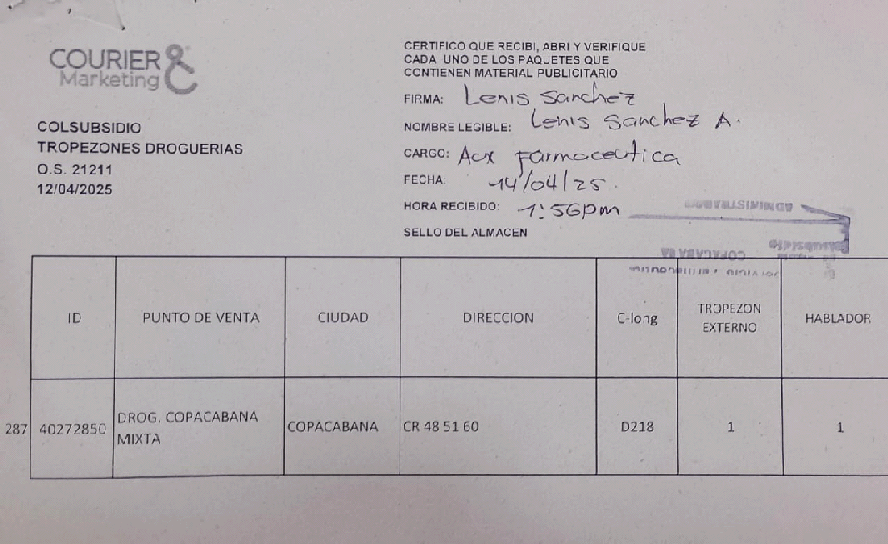 COURIER &
Marketing
COLSUBSIDIO
TROPEZONES DROGUERIAS
O.S. 21211
12/04/2025
CERTIFICO QUE RECIBI, ABRI Y VERIFIQUE
CADA UNO DE LOS PAQUETES QUE
CONTIENEN MATERIAL PUBLICITARIO
FIRMA: Lenis Sanchez
NOMBRE LEGIBLE: Lenis Sanchez A.
CARGO: Aux farmaceutica
FECHA 14/04/25.
HORA RECIBIDO: 1:56pm
SELLO DEL ALMACEN
ID PUNTO DE VENTA CIUDAD DIRECCION C-long TROPEZON EXTERNO HABLADOR
287 40272850 DROG. COPACABANA MIXTA COPACABANA CR 48 51 60 D218 1 1